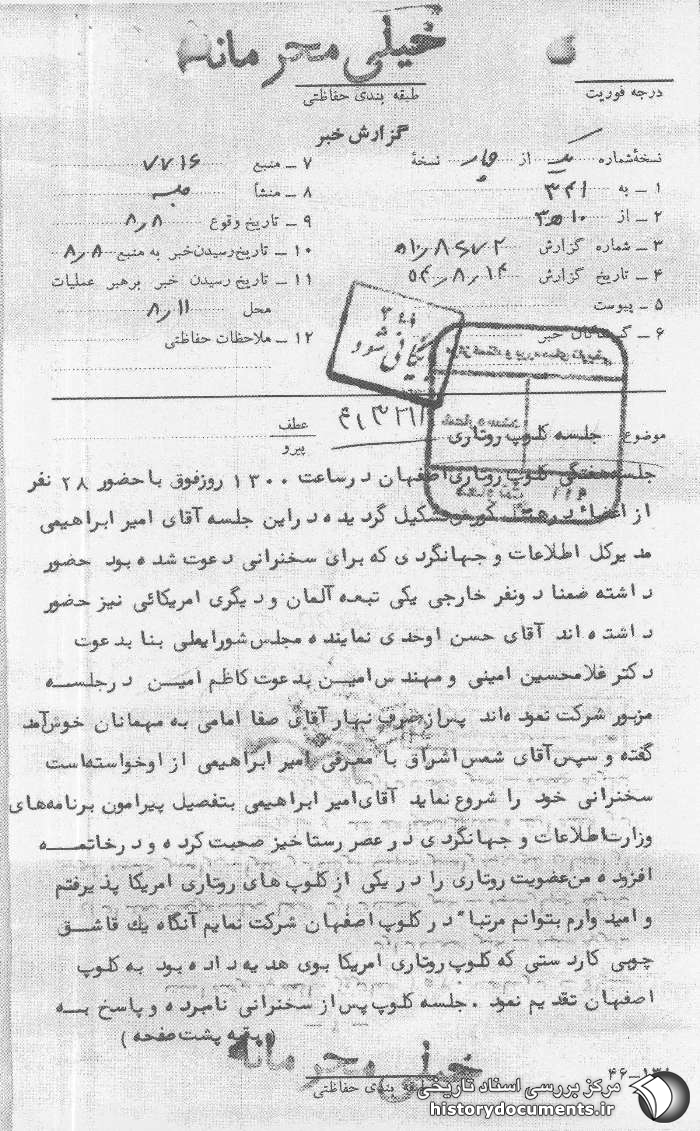 خیلی محرمانه
طبقه بندی حفاظتی
درجه فوریت
گزارش خبر
نسخهٔ شماره یک از چهار نسخهٔ
۱ ـ به ۳۴۱
۲ ـ از ۱۰ﻫ۳
۳ ـ شماره گزارش
۴ ـ تاریخ گزارش ۵۴٫۸٫۱۴
۵ ـ پیوست
۶ ـ گیرندگان خبر
۷ ـ منبع ۷۷۱۶
۸ ـ منشأ جلسه
۹ ـ تاریخ وقوع ۸٫۸
۱۰ ـ تاریخ رسیدن خبر به منبع ۸٫۸
۱۱ ـ تاریخ رسیدن خبر برهبر عملیات
محل ۸٫۱۱
۱۲ ـ ملاحظات حفاظتی
بایگانی شود
موضوع جلسه کلوپ روتاری
عطف
پیرو
جلسه هفتگی کلوپ روتاری اصفهان در ساعت ۱۳۰۰ روز فوق با حضور ۲۸ نفر
از اعضاء در هتل کورش تشکیل گردیده در این جلسه آقای امیر ابراهیمی
مدیرکل اطلاعات و جهانگردی که برای سخنرانی دعوت شده بود حضور
داشته ضمنا دونفر خارجی یکی تبعه آلمان و دیگری امریکائی نیز حضور
داشته اند آقای حسن اوحدی نماینده مجلس شورایملی بنا بدعوت
دکتر غلامحسین امینی و مهندس امین بدعوت کاظم امین در جلسه
مزبور شرکت نموده‌اند پس از صرف نهار آقای صفا امامی به مهمانان خوش‌آمد
گفته و سپس آقای شمس اشراق با معرفی امیر ابراهیمی از او خواسته است
سخنرانی خود را شروع نماید آقای امیر ابراهیمی بتفصیل پیرامون برنامه‌های
وزارت اطلاعات و جهانگردی در عصر رستاخیز صحبت کرده و در خاتمه
افزوده من عضویت روتاری را در یکی از کلوپ های روتاری امریکا پذیرفتم
و امید وارم بتوانم مرتباً در کلوپ اصفهان شرکت نمایم آنگاه یك قاشق
چوبی کاردستی که کلوپ روتاری امریکا بوی هدیه داده بود به کلوپ
اصفهان تقدیم نمود . جلسه کلوپ پس از سخنرانی نامبرده و پاسخ به
( بقیه پشت صفحه )
خیلی محرمانه
طبقه بندی حفاظتی
مرکز بررسی اسناد تاریخی
historydocuments.ir